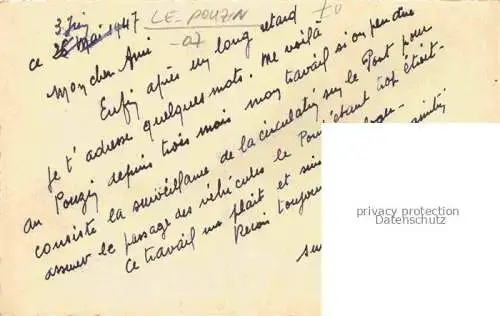 LE-POUZIN
-07
3 Juin
ce 28 Mai 1947
Mon cher Ami
Enfin après un long retard
je t'adresse quelques mots. Me voilà
au Pouzin depuis trois mois mon travail si on peu dire
consiste la surveillance de la circulation sur le Pont pour
assurer le passage des véhicules le Pont étant trop étroit-
Ce travail me plait et suis
Recois toujours amitié
privacy protection
Datenschutz